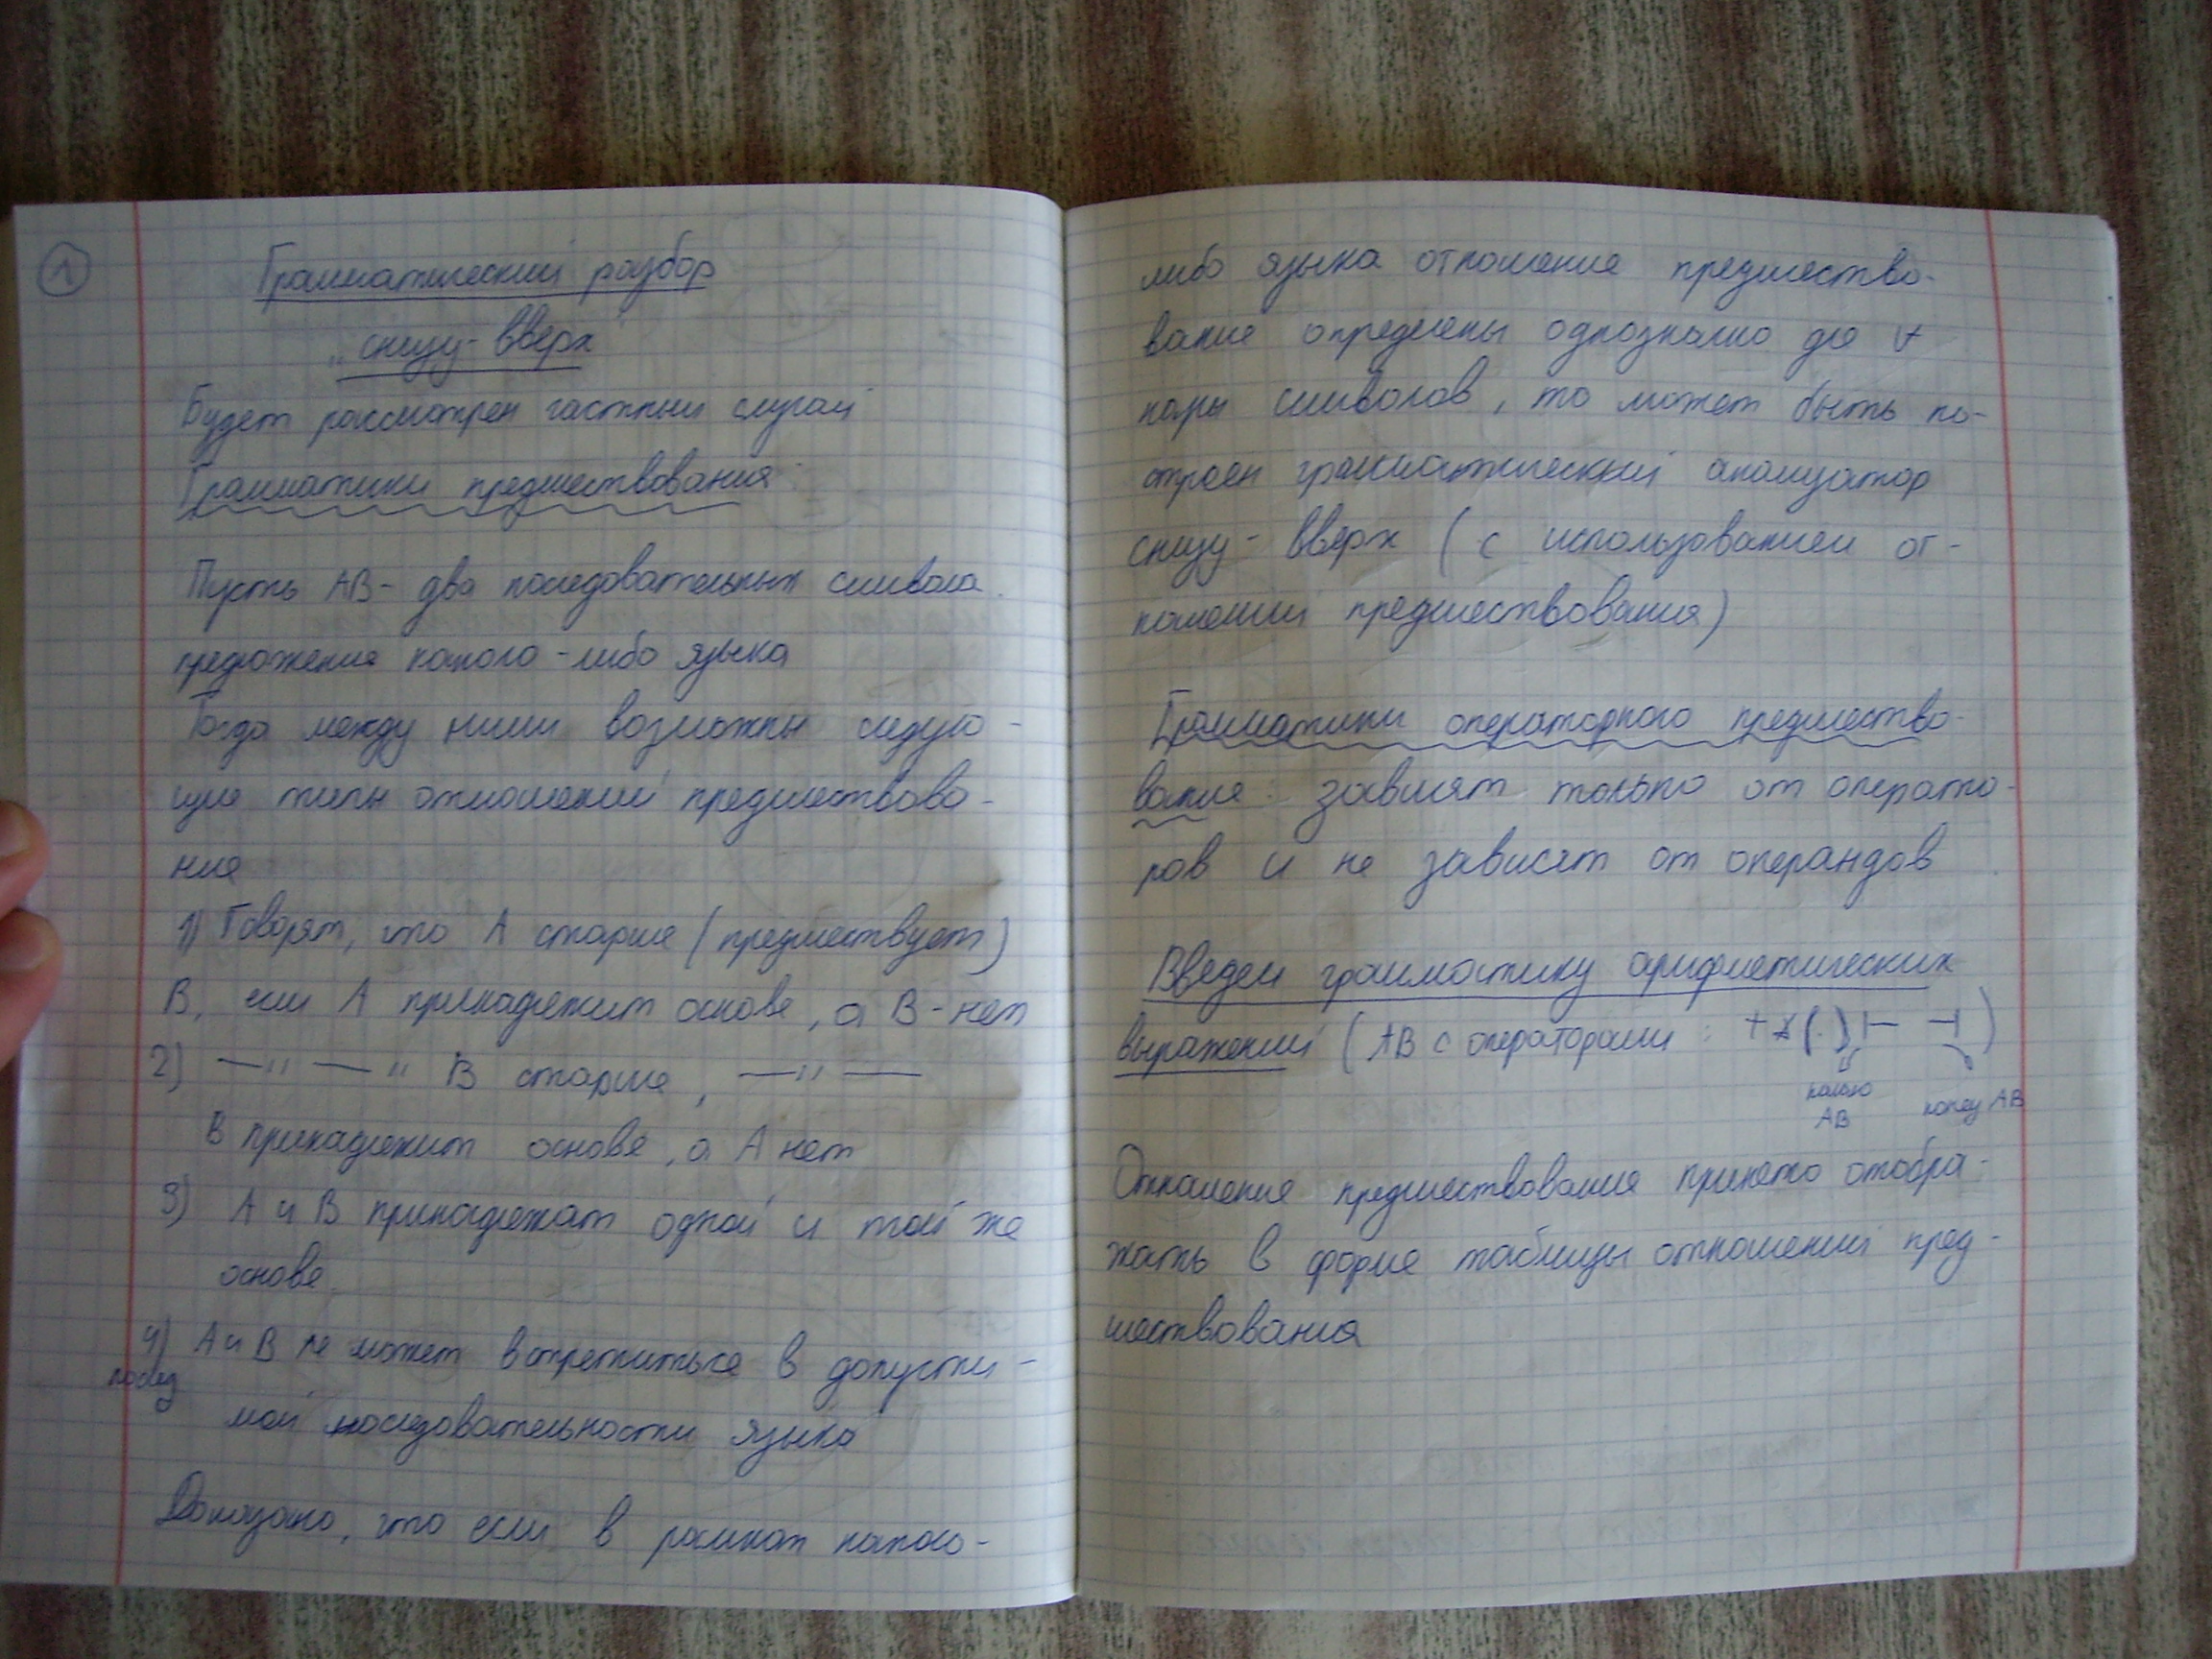 1
Грамматический разбор
„снизу-вверх"
Будет рассмотрен частный случай
Грамматики предшествования:
Пусть AB - два последовательных символа
предложения какого-либо языка
Тогда между ними возможны следую-
щие типы отношений предшествова-
ния
1) Говорят, что A старше (предшествует)
B, если A принадлежит основе, а B - нет
2) —"— " B старше, —"—
B принадлежит основе, а A нет
3) A и B принадлежат одной и той же
основе
4) A и B не может встретиться в допусти-
мой последовательности языка
Доказано, что если в рамках какого-
либо языка отношение предшество-
вание определены однозначно для ∀
пары символов, то может быть по-
строен грамматический анализатор
снизу-вверх (с использованием от-
ношений предшествования)
Грамматики операторного предшество-
вание: зависят только от операто-
ров и не зависят от операндов
Введем грамматику арифметических
выражений (АВ с операторами: + * ( . ) ⊢ ⊣ )
начало конец АВ
АВ
Отношения предшествования принято отобра-
жать в форме таблицы отношений пред-
шествования